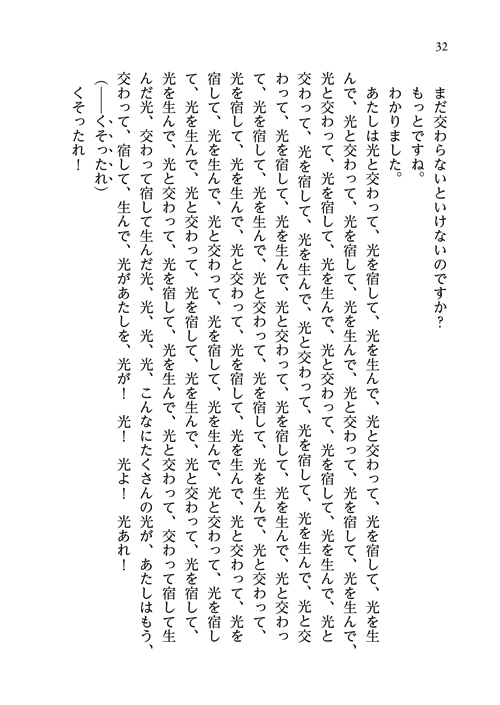 32
まだ交わらないといけないのですか？
もっとですね。
わかりました。
あたしは光と交わって、光を宿して、光を生んで、光と交わって、光を宿して、光を生
んで、光と交わって、光を宿して、光を生んで、光と交わって、光を宿して、光を生んで、
光と交わって、光を宿して、光を生んで、光と交わって、光を宿して、光を生んで、光と
交わって、光を宿して、光を生んで、光と交わって、光を宿して、光を生んで、光と交
わって、光を宿して、光を生んで、光と交わって、光を宿して、光を生んで、光と交わっ
て、光を宿して、光を生んで、光と交わって、光を宿して、光を生んで、光と交わって、
光を宿して、光を生んで、光と交わって、光を宿して、光を生んで、光と交わって、光を
宿して、光を生んで、光と交わって、光を宿して、光を生んで、光と交わって、光を宿し
て、光を生んで、光と交わって、光を宿して、光を生んで、光と交わって、光を宿して、
光を生んで、光と交わって、光を宿して、光を生んで、光と交わって、交わって宿して生
んだ光、交わって宿して生んだ光、光、光、光、こんなにたくさんの光が、あたしはもう、
交わって、宿して、生んで、光があたしを、光が！　光！　光よ！　光あれ！
（――くそったれ）
くそったれ！